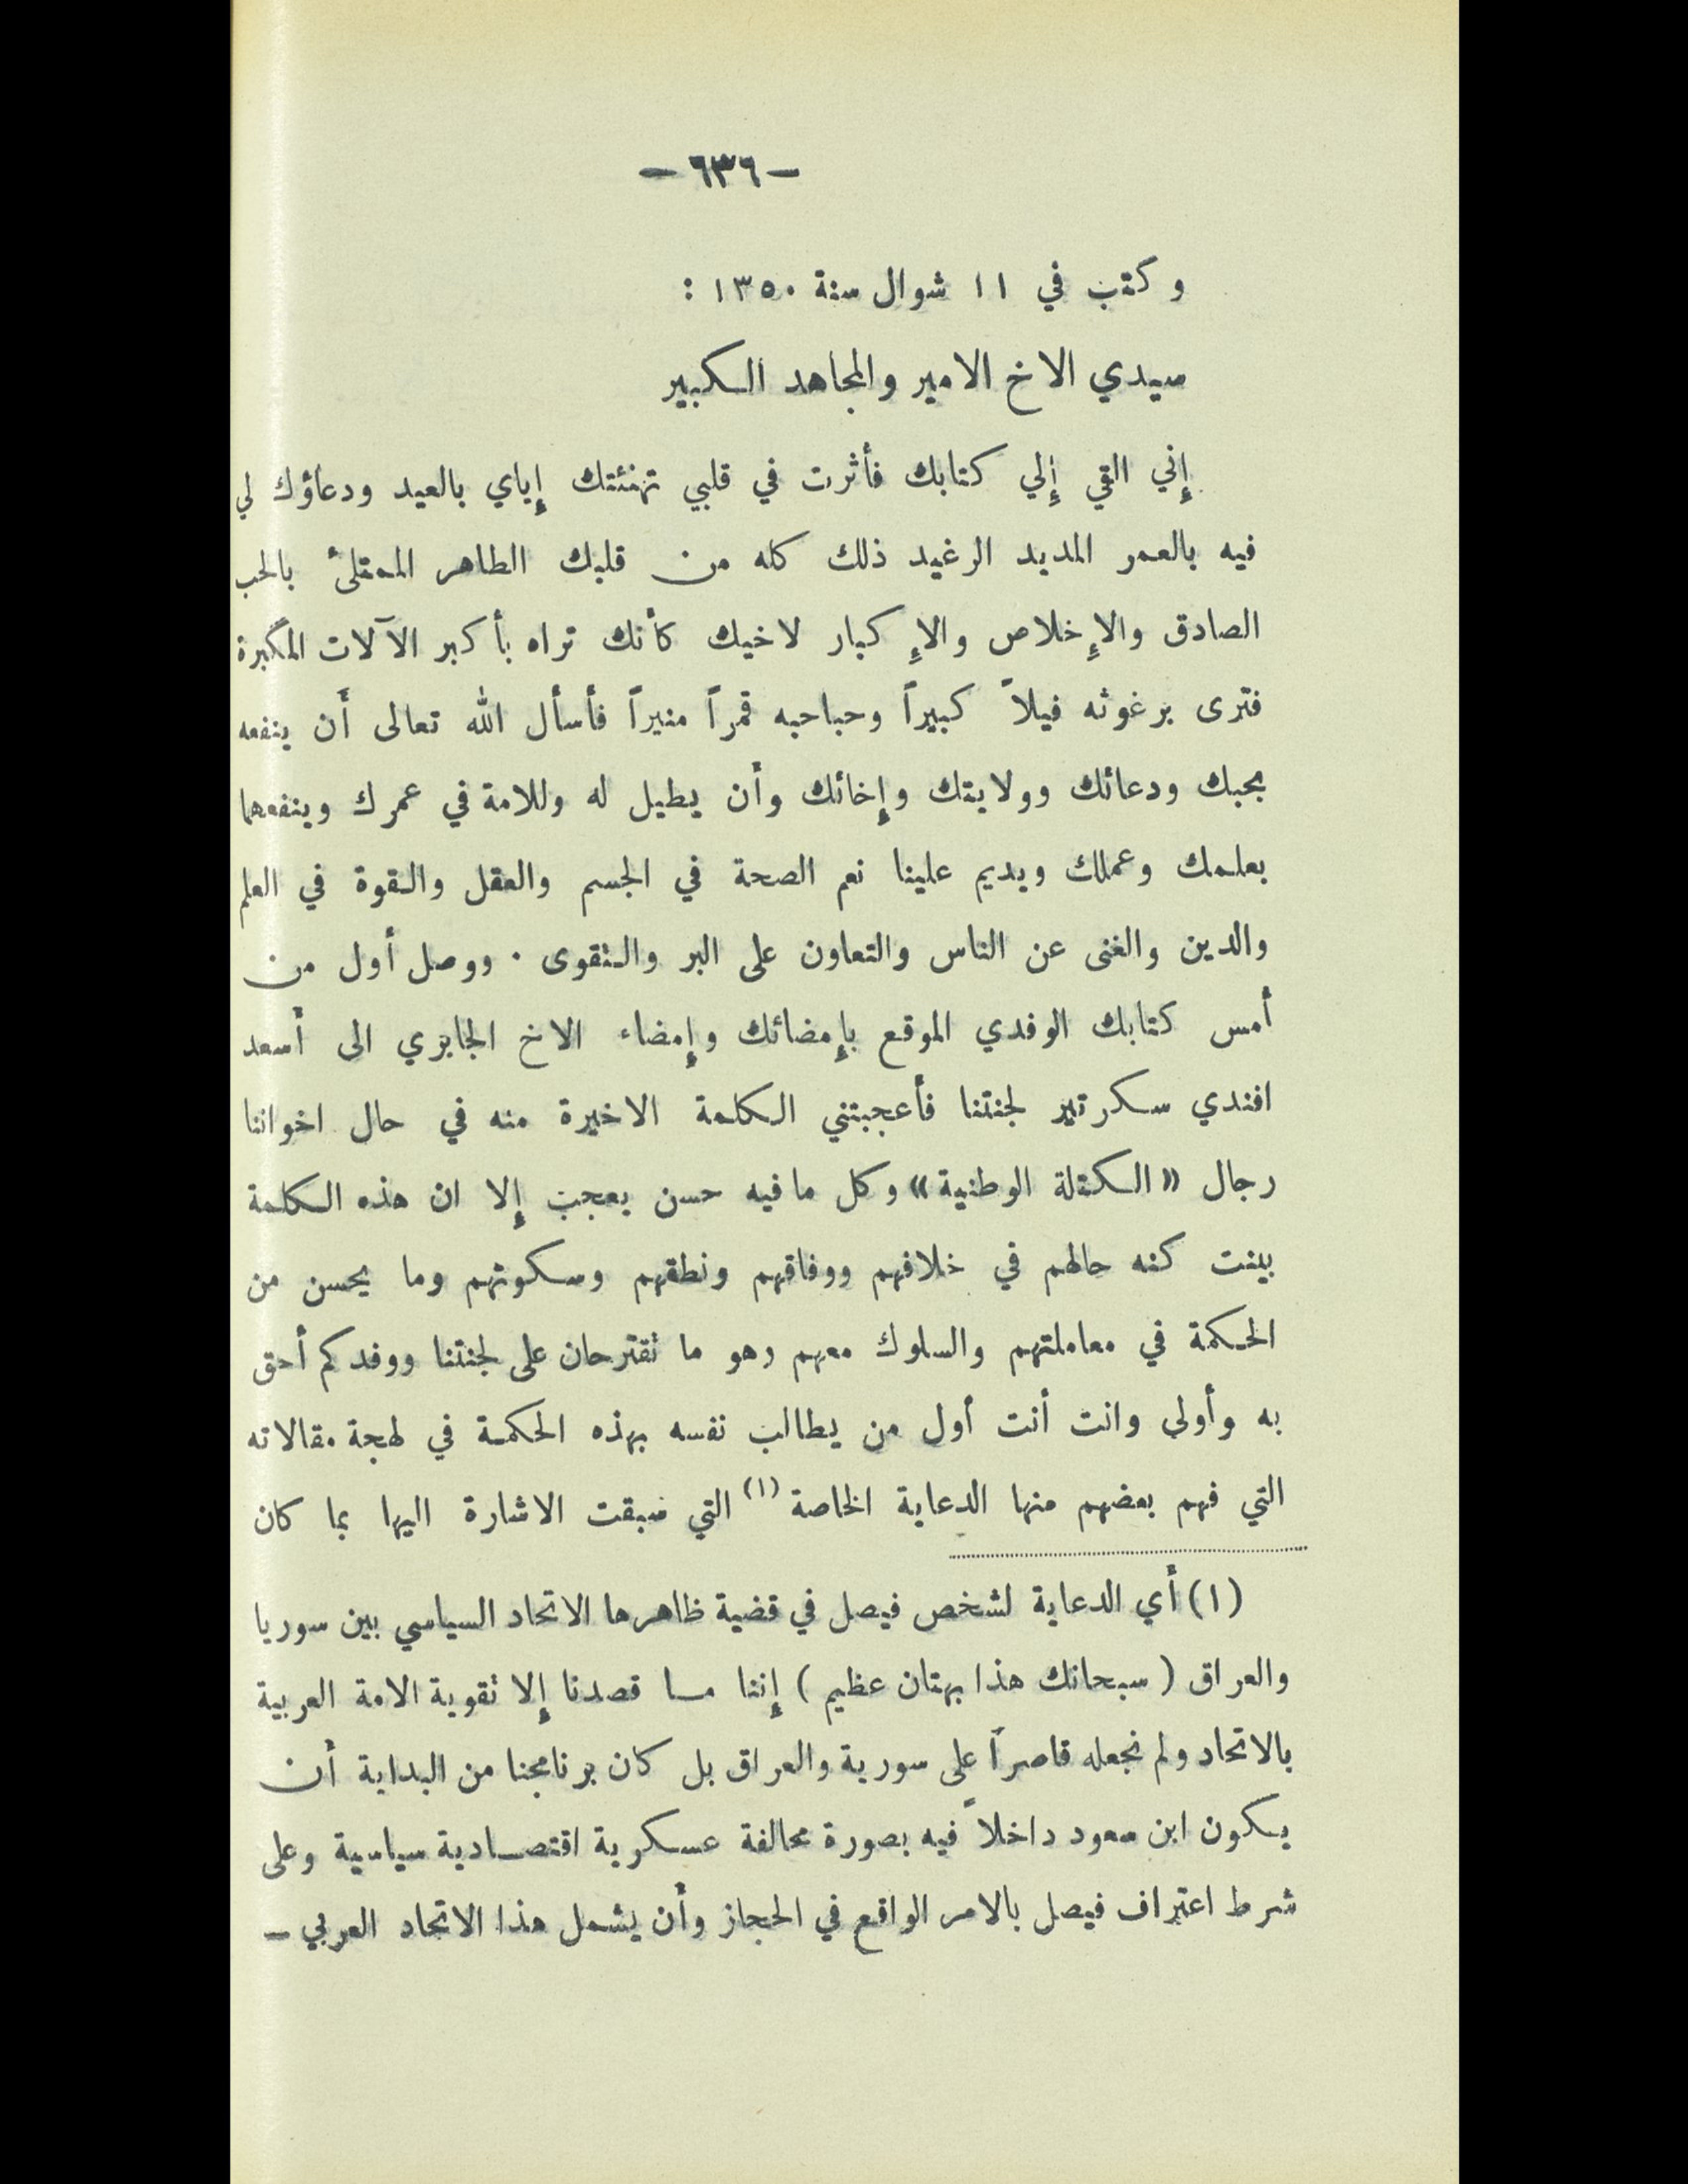 — ٦٣٦ —
وكتب في ١١ شوال سنة ١٣٥٠ :
سيدي الاخ الامير والمجاهد الكبير
إِني القي إِلي كتابك فأثرت في قلبي تهنئتك إِياي بالعيد ودعاؤك لي
فيه بالعمر المديد الرغيد ذلك كله من قلبك الطاهر الممتلئ بالحب
الصادق والإِخلاص والإِكبار لاخيك كأنك تراه بأكبر الآلات المكبرة
فترى برغوثه فيلاً كبيراً وحباحبه قمراً منيراً فأسأل الله تعالى أن ينفعه
بحبك ودعائك وولايتك وإِخائك وأن يطيل له وللامة في عمرك وينفعهما
بعلمك وعملك ويديم علينا نعم الصحة في الجسم والعقل والقوة في العلم
والدين والغنى عن الناس والتعاون على البر والتقوى . ووصل أول من
أمس كتابك الوفدي الموقع بإِمضائك وإِمضاء الاخ الجابري الى أسعد
افندي سكرتير لجنتنا فأعجبتني الكلمة الاخيرة منه في حال اخواننا
رجال «الكتلة الوطنية» وكل ما فيه حسن يعجب إِلا ان هذه الكلمة
بينت كنه حالهم في خلافهم ووفاقهم ونطقهم وسكوتهم وما يحسن من
الحكمة في معاملتهم والسلوك معهم وهو ما تقترحان على لجنتنا ووفدكم أحق
به وأولى وانت أنت أول من يطالب نفسه بهذه الحكمة في لهجة مقالاته
التي فهم بعضهم منها الدعاية الخاصة (١) التي سبقت الاشارة اليها بما كان
(١) أي الدعاية لشخص فيصل في قضية ظاهرها الاتحاد السياسي بين سوريا
والعراق ( سبحانك هذا بهتان عظيم ) إِننا ما قصدنا إِلا تقوية الامة العربية
بالاتحاد ولم نجعله قاصراً على سورية والعراق بل كان برنامجنا من البداية أن
يكون ابن سعود داخلاً فيه بصورة محالفة عسكرية اقتصادية سياسية وعلى
شرط اعتراف فيصل بالامر الواقع في الحجاز وأن يشمل هذا الاتحاد العربي —